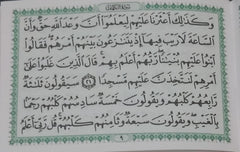 سُورَةُ الكَهْفِ
وَكَذَٰلِكَ أَعْثَرْنَا عَلَيْهِمْ لِيَعْلَمُوا أَنَّ وَعْدَ اللَّهِ حَقٌّ وَأَنَّ
السَّاعَةَ لَا رَيْبَ فِيهَا إِذْ يَتَنَازَعُونَ بَيْنَهُمْ أَمْرَهُمْ فَقَالُوا
ابْنُوا عَلَيْهِمْ بُنْيَانًا رَبُّهُمْ أَعْلَمُ بِهِمْ قَالَ الَّذِينَ غَلَبُوا عَلَىٰ
أَمْرِهِمْ لَنَتَّخِذَنَّ عَلَيْهِمْ مَسْجِدًا ٢١ سَيَقُولُونَ ثَلَٰثَةٌ
رَابِعُهُمْ كَلْبُهُمْ وَيَقُولُونَ خَمْسَةٌ سَادِسُهُمْ كَلْبُهُمْ رَجْمًا
بِالْغَيْبِ وَيَقُولُونَ سَبْعَةٌ وَثَامِنُهُمْ كَلْبُهُمْ قُلْ رَبِّي أَعْلَمُ
٩